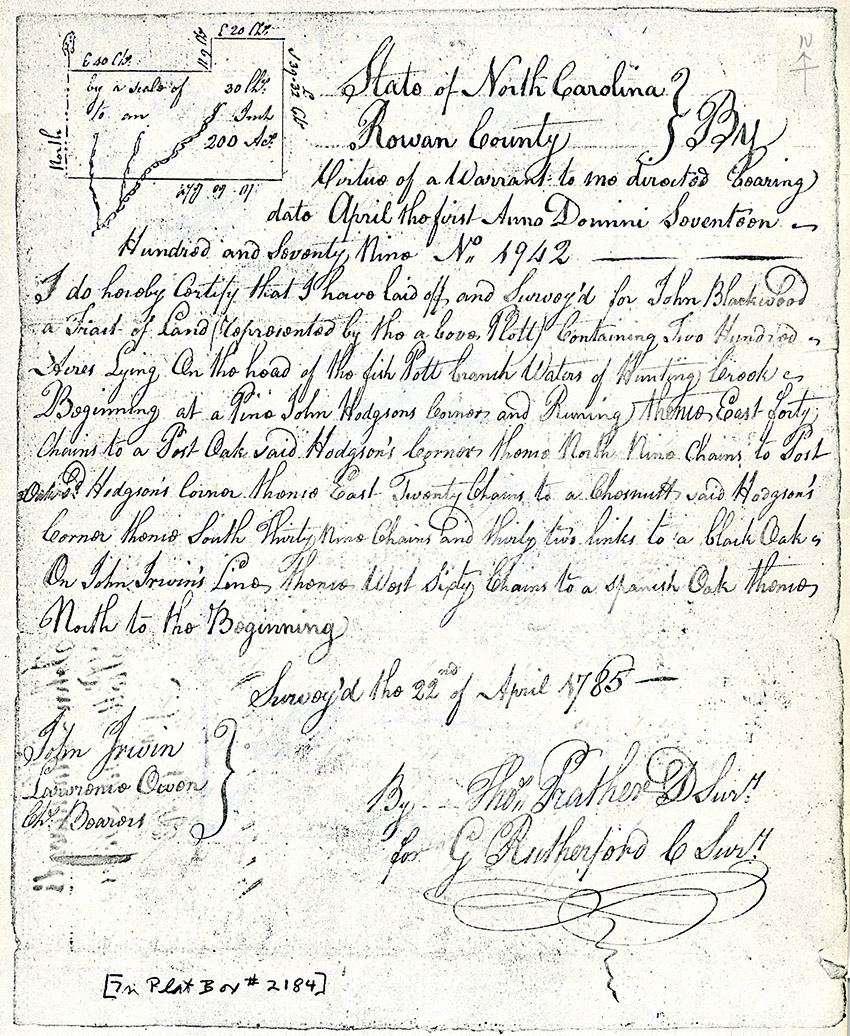 E 20 Chs.
E 40 Chs.
N 9 Ch
by a scale of 30 Chs.
to an Inch
200 Acs.
North
S 39=32 L Ch
W 60 Ch
N
State of North Carolina }
Rowan County } By
Virtue of a Warrant to me directed bearing
date April the first Anno Domini Seventeen
Hundred and Seventy Nine No. 1942
I do hereby Certify that I have laid off, and Survey'd for John Blackwood
a Tract of Land (represented by the above Plott) Containing Two Hundred
Acres Lying On the head of the fish Pott branch Waters of Hunting Creek
Beginning at a Pine John Hodgsons Corner and Runing thence East forty
Chains to a Post Oak said Hodgson's Corner thence North Nine Chains to Post
Oak sd. Hodgson's Corner thence East Twenty Chains to a Chesnutt said Hodgson's
Corner thence South Thirty Nine Chains and thirty two links to a black Oak
On John Irwin's Line thence West Sixty Chains to a spanish Oak thence
North to the Beginning
Survey'd the 22nd of April 1785
John Irwin
Lawrence Owen
Ch. Bearers
By Thos. Prather D Survr.
for G Rutherford C Survr.
[In Plat Box # 2184]